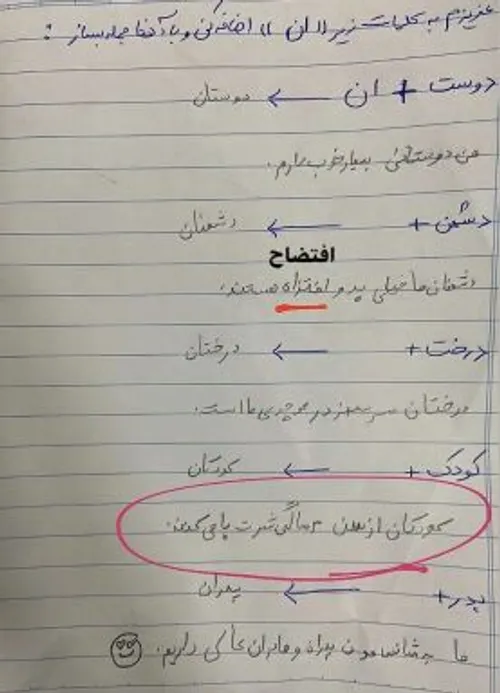 عزیزم به کلمات زیر «ان» اضافه کنی و با آنها جمله بساز :
دوست + ان ← دوستان
من دوستانی بسیار خوب دارم.
دشمن + ← دشمنان
افتضاح
دشمنان ما خیلی بد و افتزاه هستند.
درخت + ← درختان
درختان سرسبز در ما است.
کودک + ← کودکان
کودکان از سن ۲ سالگی شرت پا می کنند.
پدر + ← پدران
ما پدران و مادران داریم.